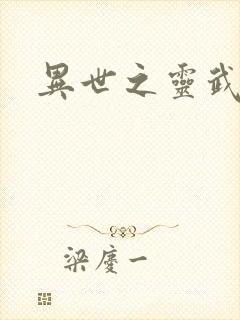 異世之靈武
梁慶一